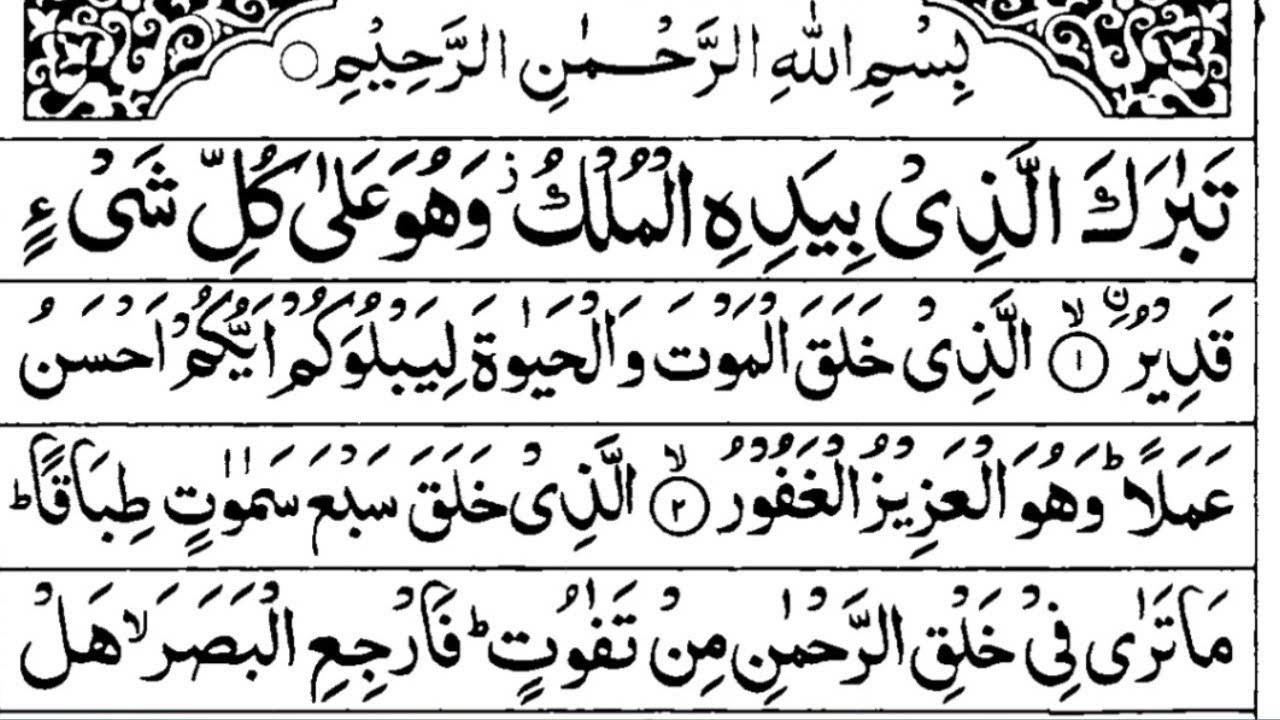 بِسْمِ اللّٰهِ الرَّحْمٰنِ الرَّحِيْمِ ○
تَبٰرَكَ الَّذِىْ بِيَدِهِ الْمُلْكُ ز وَهُوَ عَلٰى كُلِّ شَىْءٍ
قَدِيْرُ ۨ ﴿١﴾ ۙ الَّذِىْ خَلَقَ الْمَوْتَ وَالْحَيٰوةَ لِيَبْلُوَكُمْ اَيُّكُمْ اَحْسَنُ
عَمَلًا ؕ وَهُوَ الْعَزِيْزُ الْغَفُوْرُ ﴿٢﴾ ۙ الَّذِىْ خَلَقَ سَبْعَ سَمٰوٰتٍ طِبَاقًا ؕ
مَا تَرٰى فِىْ خَلْقِ الرَّحْمٰنِ مِنْ تَفٰوُتٍ ؕ فَارْجِعِ الْبَصَرَ ۙ هَلْ